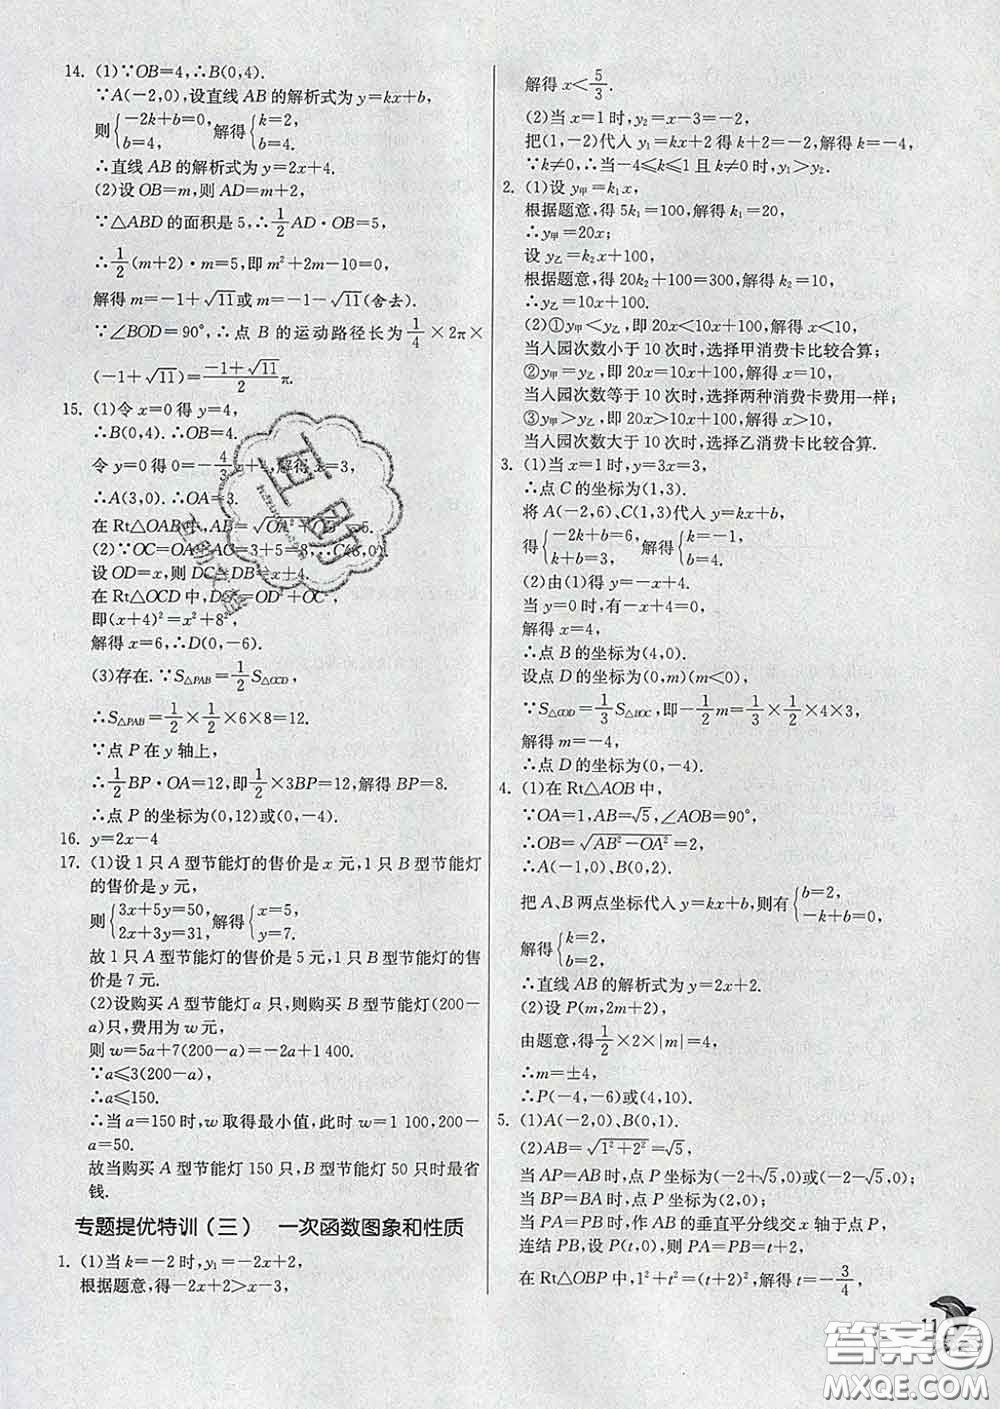 14. (1)∵OB=4,∴B(0,4).
∵A(-2,0),设直线 AB 的解析式为 y=kx+b,
则{-2k+b=0, b=4. 解得{k=2, b=4.
∴直线 AB 的解析式为 y=2x+4.
(2)设 OB=m,则 AD=m+2,
∵△ABD 的面积是 5,∴1/2 AD·OB=5,
∴1/2(m+2)·m=5,即 m²+2m-10=0,
解得 m=-1+√11或 m=-1-√11(舍去).
∵∠BOD=90°,∴点 B 的运动路径长为 1/4×2π×
(-1+√11)=(-1+√11)/2 π.
15. (1)令 x=0 得 y=4,
∴B(0,4).∴OB=4.
令 y=0 得 0=-4/3x+4,解得 x=3,
∴A(3,0).∴OA=3.
在 Rt△OAB 中,AB=√(OA²+OB²)=5.
(2)∵OC=OA+AC=3+5=8,∴C(8,0).
设 OD=x,则 DC=DB=x+4.
在 Rt△OCD 中,DC²=OD²+OC²,
即(x+4)²=x²+8².
解得 x=6,∴D(0,-6).
(3)存在.∵S△PAB=1/2 S△OCD,
∴S△PAB=1/2×1/2×6×8=12.
∵点 P 在 y 轴上,
∴1/2 BP·OA=12,即1/2×3BP=12,解得 BP=8.
∴点 P 的坐标为(0,12)或(0,-4).
16. y=2x-4
17. (1)设 1 只 A 型节能灯的售价是 x 元,1 只 B 型节能灯
的售价是 y 元,
则{3x+5y=50, 2x+3y=31, 解得{x=5, y=7.
故 1 只 A 型节能灯的售价是 5 元,1 只 B 型节能灯的售
价是 7 元.
(2)设购买 A 型节能灯 a 只,则购买 B 型节能灯(200-
a)只,费用为 w 元,
则 w=5a+7(200-a)=-2a+1 400.
∵a≤3(200-a),
∴a≤150.
∴当 a=150 时,w 取得最小值,此时 w=1 100,200-
a=50.
故当购买 A 型节能灯 150 只,B 型节能灯 50 只时最省
钱.
专题提优特训(三) 一次函数图象和性质
1. (1)当 k=-2 时,y₁=-2x+2,
根据题意,得-2x+2>x-3,
解得 x<5/3.
(2)当 x=1 时,y₂=x-3=-2,
把(1,-2)代入 y₁=kx+2 得 k+2=-2,解得 k=-4,
∵k≠0,∴当-4≤k≤1 且 k≠0 时,y₁>y₂.
2. (1)设 y甲=k₁x,
根据题意,得 5k₁=100,解得 k₁=20,
∴y甲=20x;
设 y乙=k₂x+100,
根据题意,得 20k₂+100=300,解得 k₂=10,
∴y乙=10x+100.
(2)①y甲<y乙,即 20x<10x+100,解得 x<10,
当入园次数小于 10 次时,选择甲消费卡比较合算;
②y甲=y乙,即 20x=10x+100,解得 x=10,
当入园次数等于 10 次时,选择两种消费卡费用一样;
③y甲>y乙,即 20x>10x+100,解得 x>10,
当入园次数大于 10 次时,选择乙消费卡比较合算.
3. (1)当 x=1 时,y=3x=3,
∴点 C 的坐标为(1,3).
将 A(-2,6)、C(1,3)代入 y=kx+b,
得{-2k+b=6, k+b=3, 解得{k=-1, b=4.
(2)由(1)得 y=-x+4.
当 y=0 时,有-x+4=0,
解得 x=4,
∴点 B 的坐标为(4,0).
设点 D 的坐标为(0,m)(m<0),
∵S△COD=1/3 S△BOC,即-1/2m=1/3×1/2×4×3,
解得 m=-4,
∴点 D 的坐标为(0,-4).
4. (1)在 Rt△AOB 中,
∵OA=1,AB=√5,∠AOB=90°,
∴OB=√(AB²-OA²)=2,
∴A(-1,0)、B(0,2).
把 A、B 两点坐标代入 y=kx+b,则有{b=2, -k+b=0,
解得{k=2, b=2,
∴直线 AB 的解析式为 y=2x+2.
(2)设 P(m,2m+2),
由题意,得1/2×2×|m|=4,
∴m=±4,
∴P(-4,-6)或(4,10).
5. (1)A(-2,0)、B(0,1).
(2)AB=√(1²+2²)=√5,
当 AP=AB 时,点 P 坐标为(-2+√5,0)或(-2-√5,0);
当 BP=BA 时,点 P 坐标为(2,0);
当 PA=PB 时,作 AB 的垂直平分线交 x 轴于点 P,
连结 PB,设 P(t,0),则 PA=PB=t+2,
在 Rt△OBP 中,1²+t²=(t+2)²,解得 t=-3/4,
11
答案圈
MXQE.COM